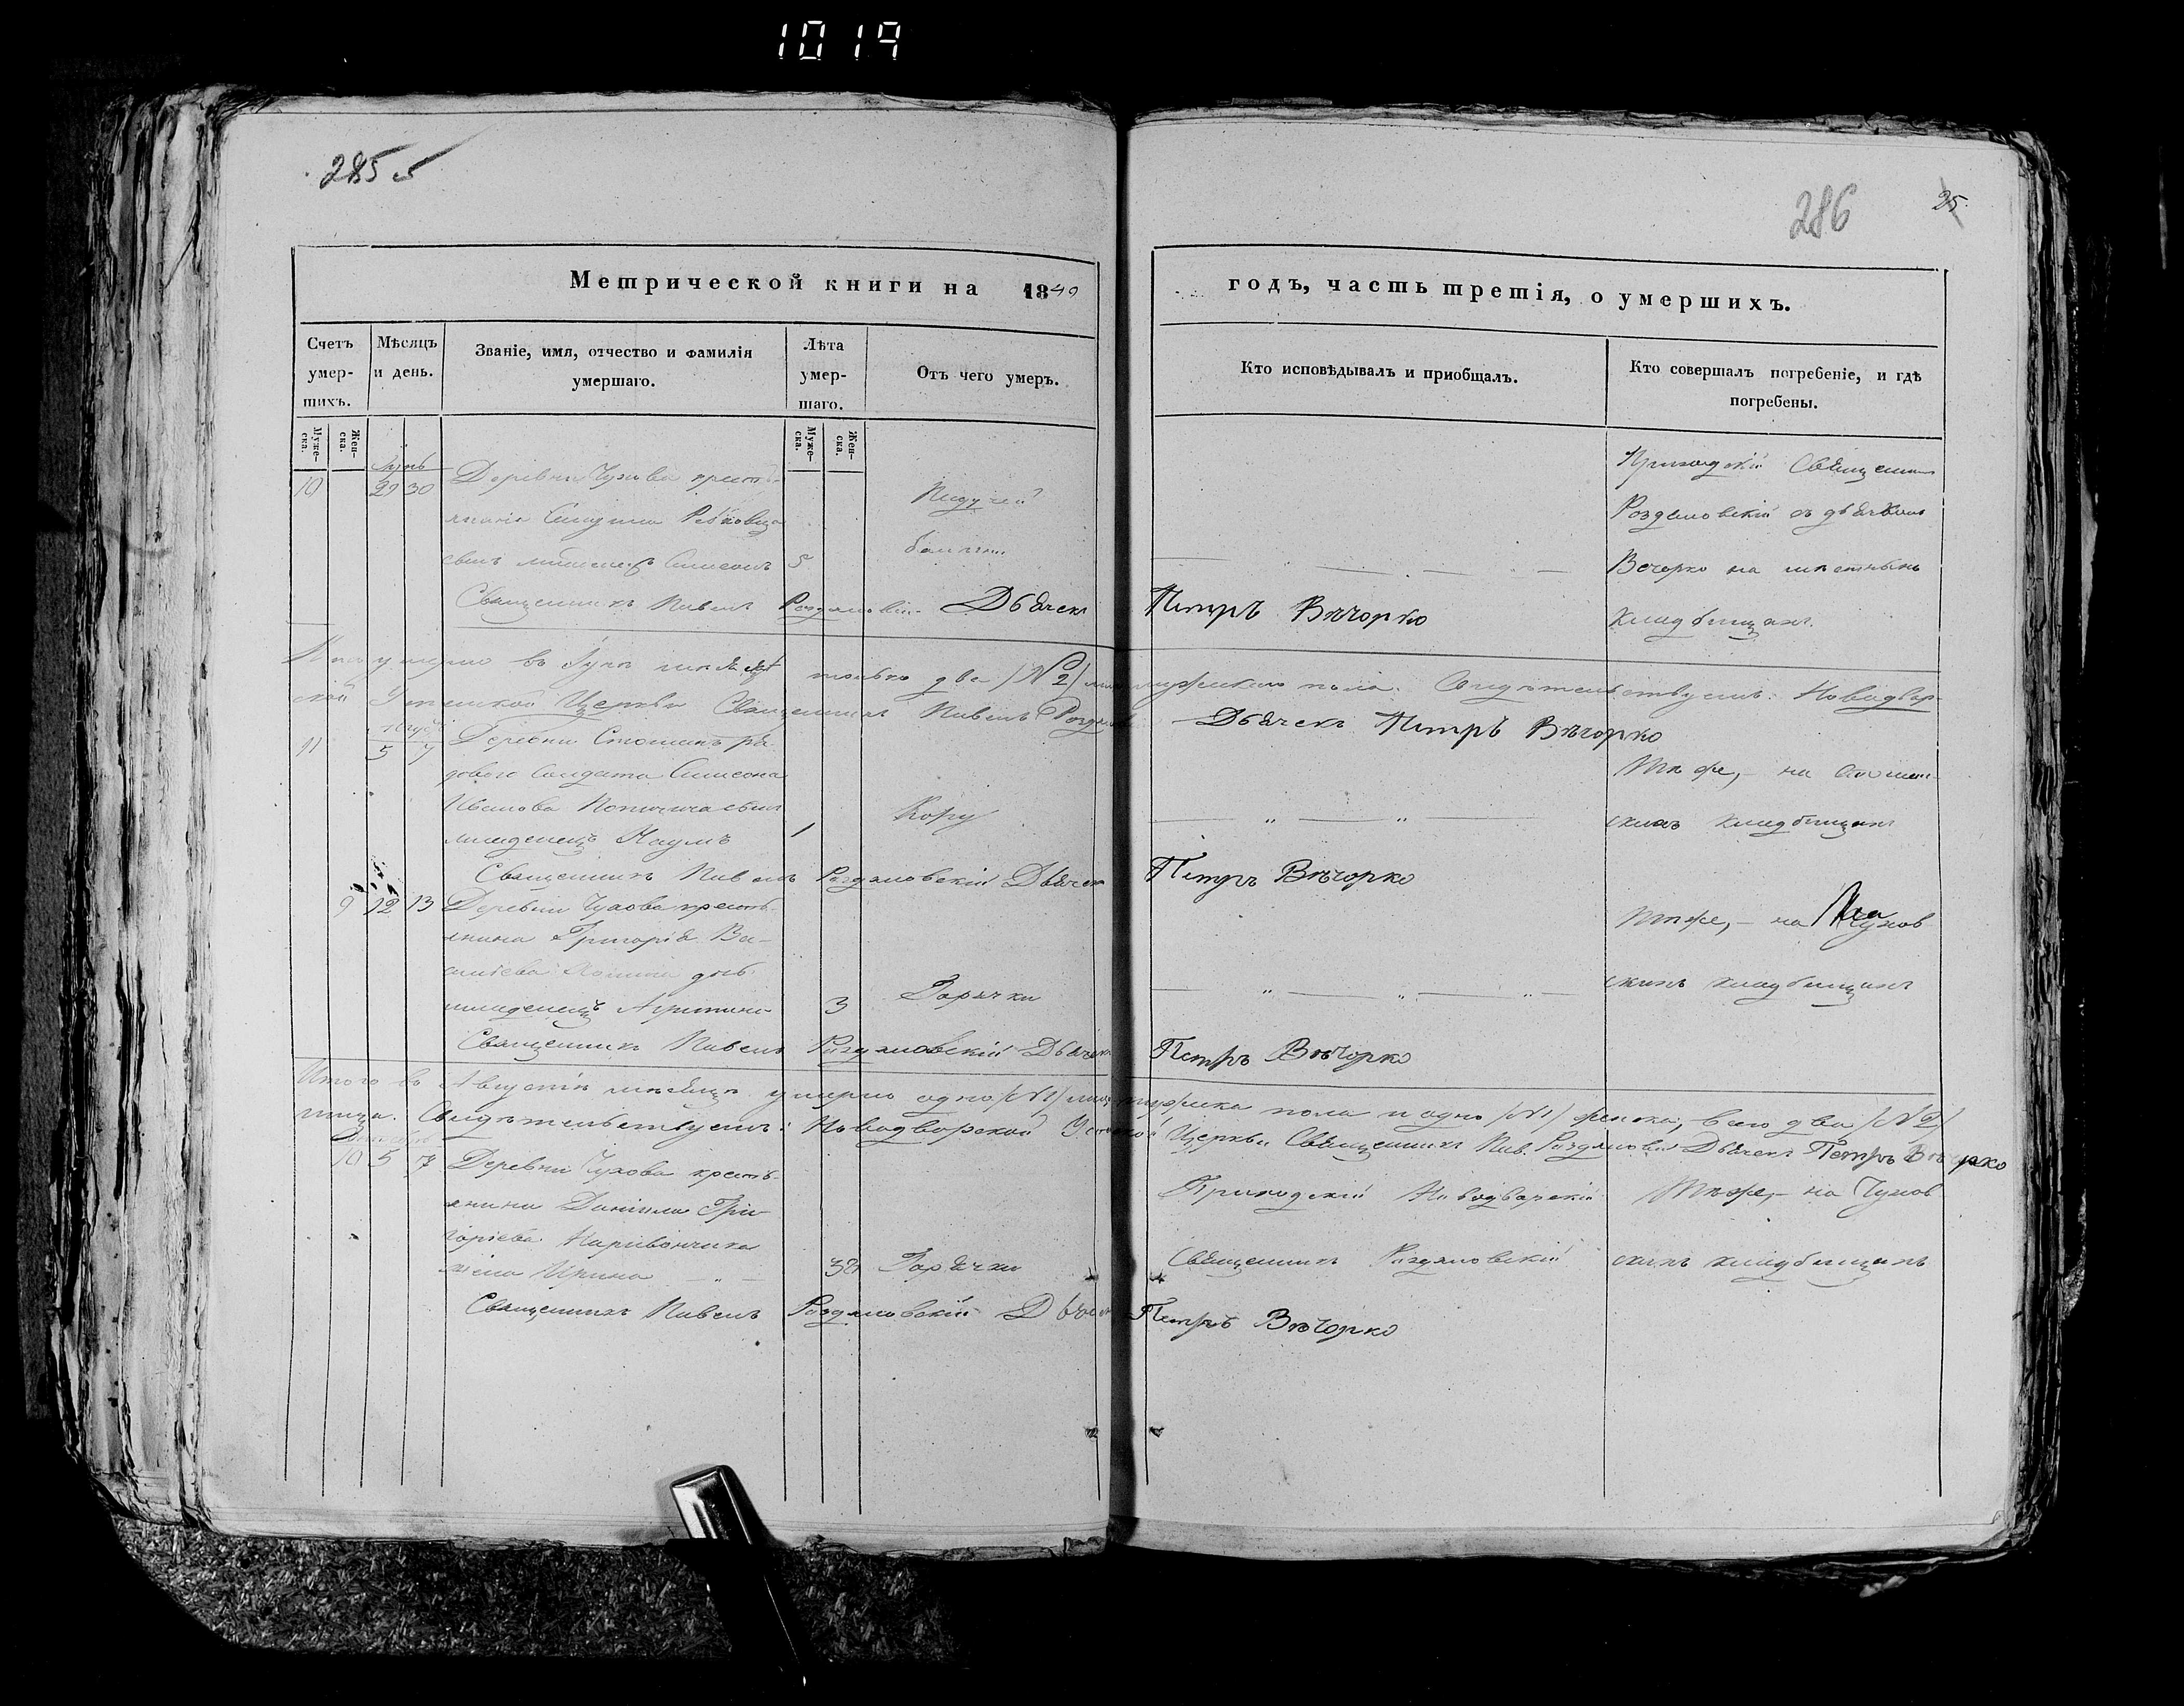 1019
285
286
25
Метрической книги на 1840
годъ, часть третія, о умершихъ.
Счетъ умер-шихъ.
Мѣсяцъ и день.
Званіе, имя, отчество и фамилія умершаго.
Лѣта умер-шаго.
Отъ чего умеръ.
Кто исповѣдывалъ и приобщалъ.
Кто совершалъ погребеніе, и гдѣ погребены.
Муже-ска.
Жен-ска.
Муже-ска.
Жен-ска.
10 29 30 Деревни Чухова кресть-
сынъ младенецъ Симеонъ 5
Приходскій Священ
Роздяловскій съ дьячкомъ
Вечорко на мѣстныхъ
кладбищахъ.
Священникъ Павелъ Роздяловскій Дьячекъ Петръ Вѣчорко
только два /№ 2/ мужеского пола. Свидѣтельствуемъ: Новодвор-
ской Успенской Церкви Священникъ Павелъ Дьячекъ Петръ Вѣчорко
11 5 7 Деревни ря-
дового солдата Симеона
Иванова сынъ
младенецъ Наумъ 1
Кору
Тѣ же, – на
скихъ кладбищахъ
Священникъ Павелъ Роздяловскій Дьячекъ Петръ Вѣчорко
9 12 13 Деревни Чухова кресть-
янина Григорія Ва-
сильева дочь
младенецъ 3 Горячки
Тѣ же, – на Чухов
скихъ кладбищахъ
Священникъ Павелъ Роздяловскій Дьячекъ Петръ Вѣчорко
Итого въ Августѣ мѣсяцѣ умерло одно /№1/ мужеска пола и одно /№1/ женска, всего два /№2/
лица. Свидѣтельствуемъ: Новодворской Успенской Церкви Священникъ Пав. Роздяловскій Дьячекъ Петръ Вѣчорко
10 5 7 Деревни Чухова кресть-
янина Даніила Гри-
горіева
жена Ирина 32 Горячки
Приходскій Новодворскій
Священникъ Роздяловскій
Тѣ же, – на Чухов
скихъ кладбищахъ
Священникъ Павелъ Роздяловскій Дьячекъ Петръ Вѣчорко